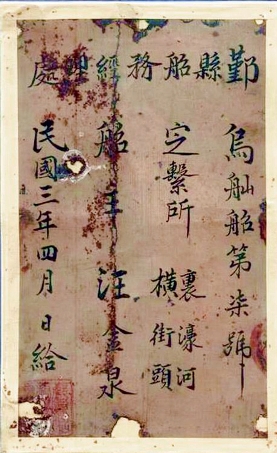 鄞縣船務經理處
烏舢船第柒號
定繫所
裏濠河
橫街頭
船主汪金泉
民國三年四月 日給